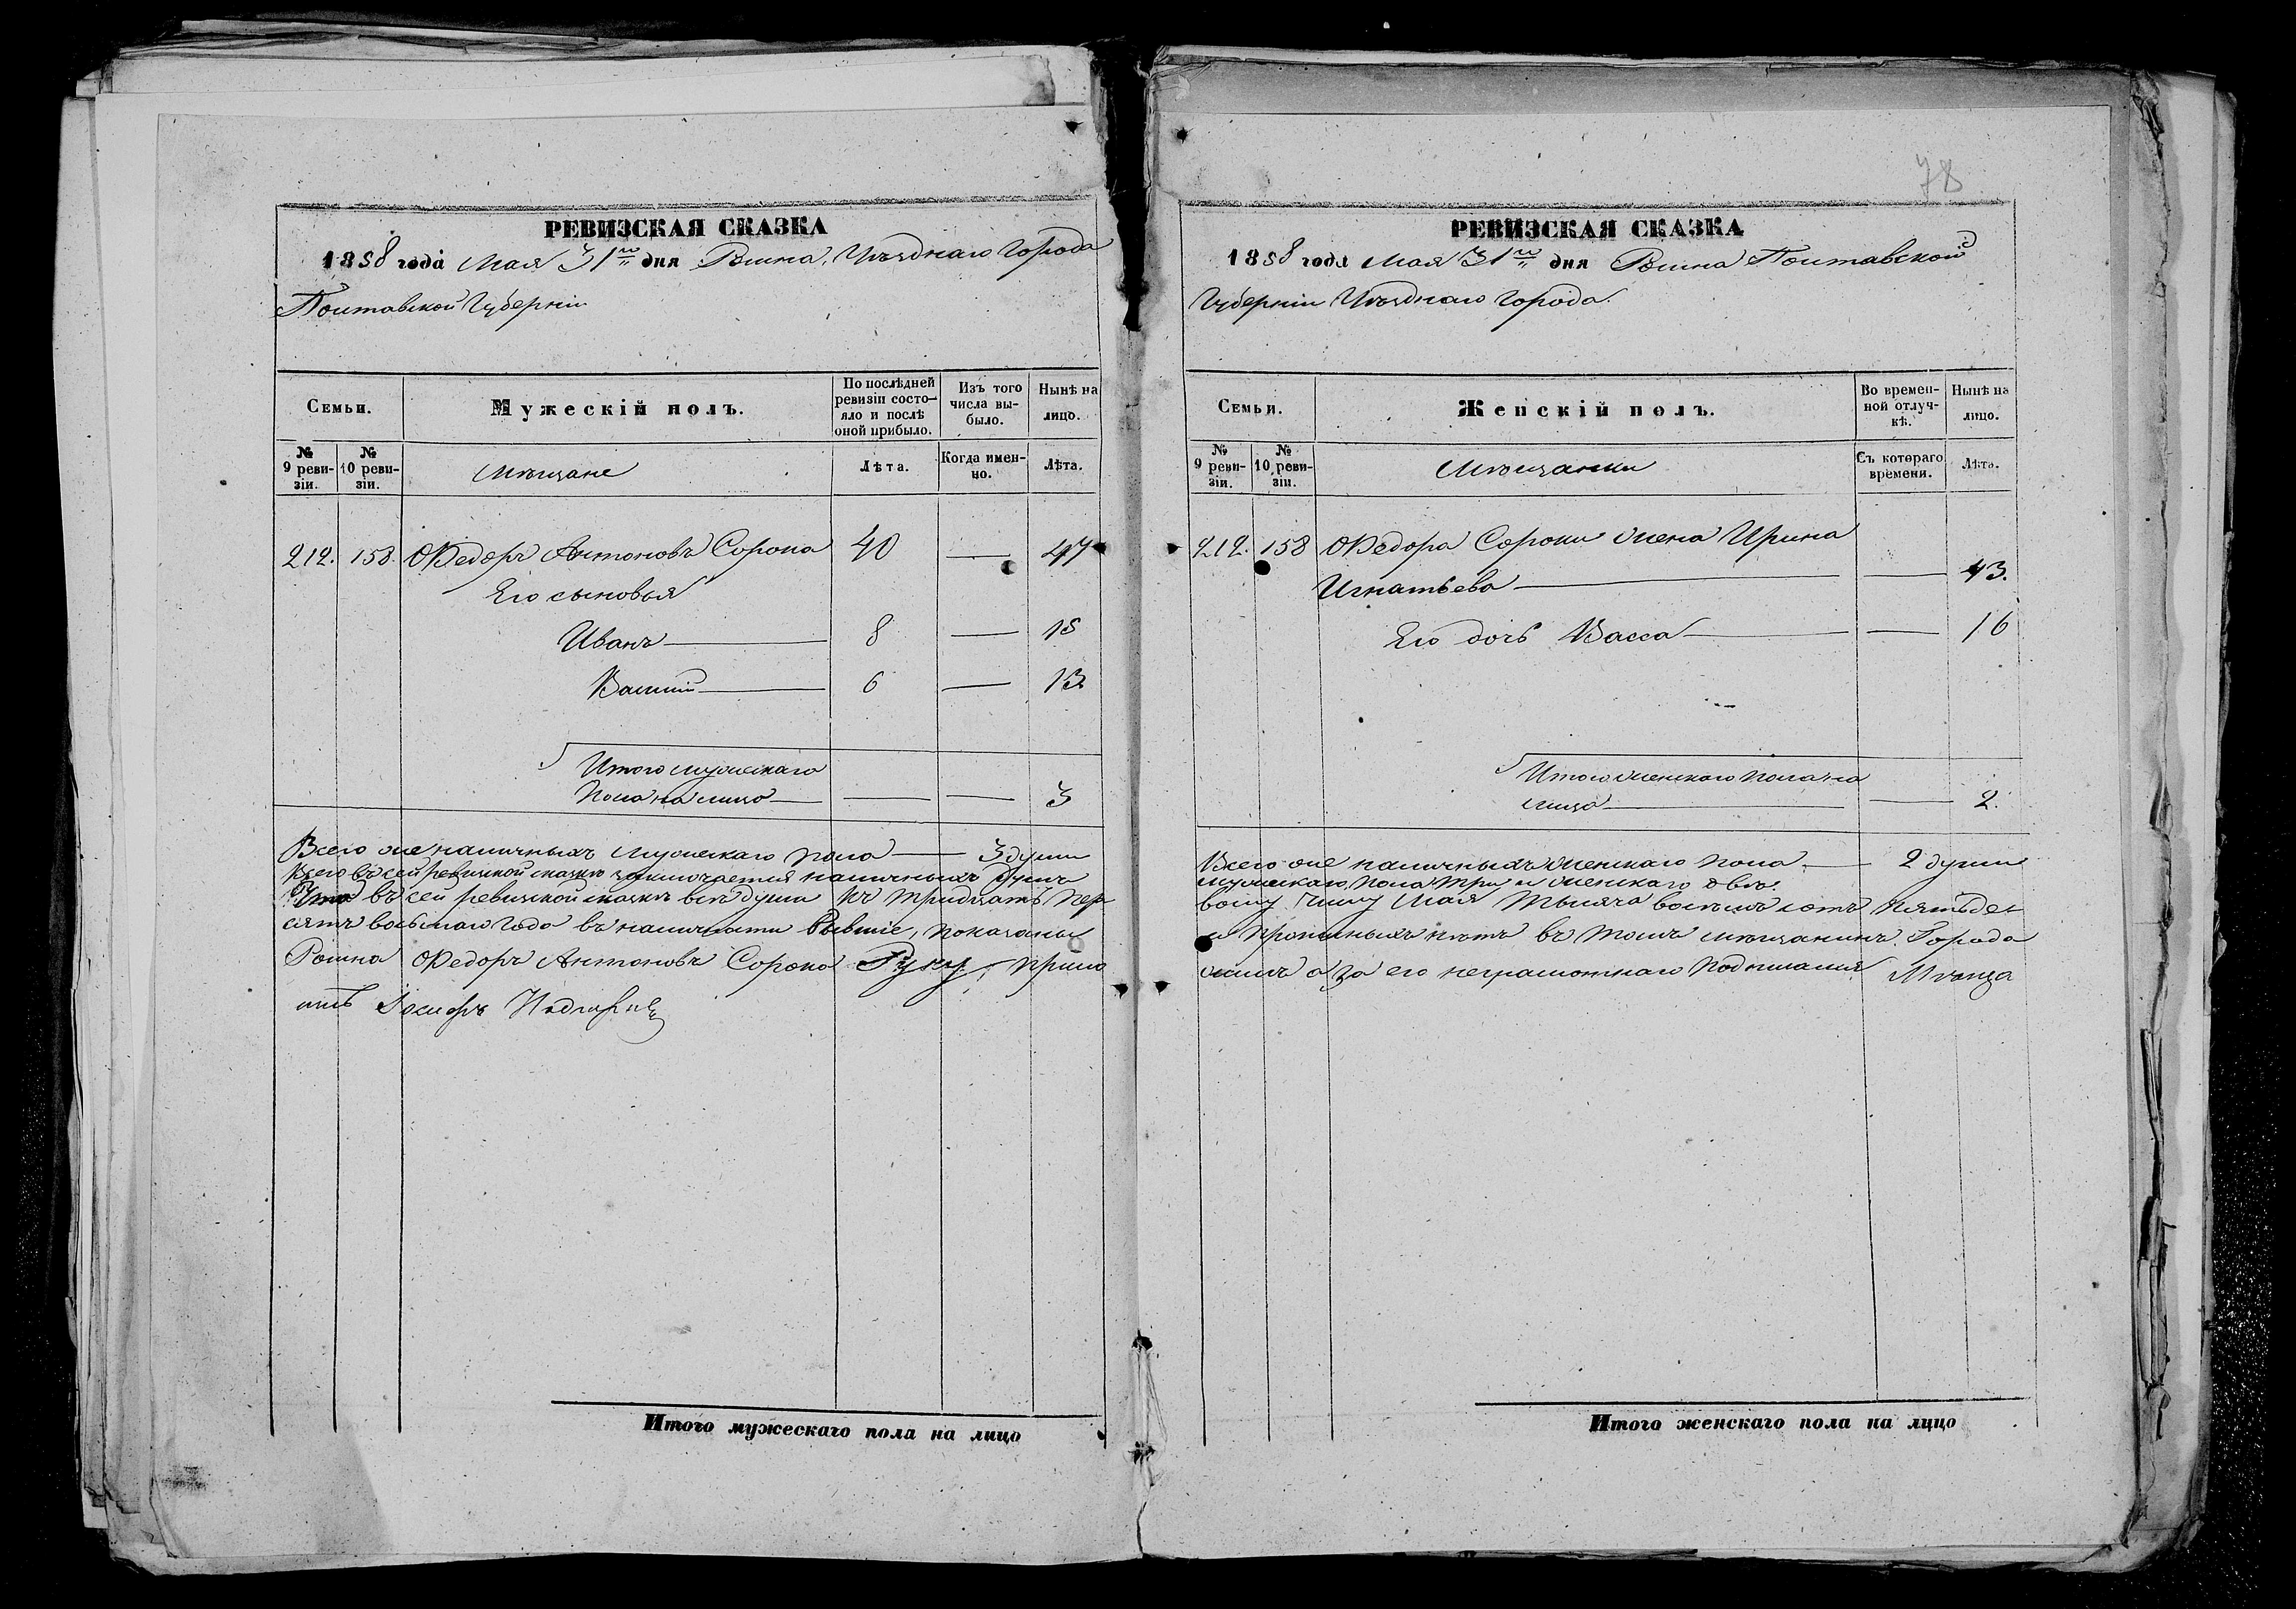 РЕВИЗСКАЯ СКАЗКА
1858 года Мая 31го дня Ромна, Уѣзднаго Города
Полтавской Губерніи
Семьи.
Мужескій полъ.
По послѣдней ревизіи состо-
яло и послѣ
оной прибыло.
Изъ того
числа вы-
было.
Нынѣ на
лицо.
№
9 реви-
зіи.
№
10 реви-
зіи.
Мѣщане
Лѣта.
Когда имен-
но.
Лѣта.
212. 158. Федоръ Антоновъ Сорока 40 — 47
Его сыновья
Иванъ — 8 — 15
Василій — 6 — 13.
Итого мужескаго
Пола на лицо — — — 3
Всего же наличныхъ мужескаго пола — 3 души
Всего въ сей ревизской сказкѣ заключается наличныхъ душъ
Что въ сей ревизской сказкѣ всѣ души къ тридцать пер
сятъ восьмаго Года въ наличности бывшіе, показаны
Ромна Федоръ Антоновъ Сорока Руку прило
Іосифъ
Итого мужескаго пола на лицо
78
РЕВИЗСКАЯ СКАЗКА
1858 года Мая 31го дня Ромна Полтавской
Губерніи Уѣзднаго Города.
Семьи.
Женскій полъ.
Во времен-
ной отлуч-
кѣ.
Нынѣ на
лицо.
№
9 реви-
зіи.
№
10 реви-
зіи.
Мѣщанки
Съ котораго
времени.
Лѣта.
212. 158 Федора Сороки жена Ирина
Игнатьева — — 43.
Его дочь Васса — — 16
Итого женскаго пола на
лицо — — 2.
Всего же наличныхъ женскаго пола — 2 души
мужскаго пола три и женскаго двѣ.
вому числу Мая Тысяча восемь сотъ пятьдес
и прописныхъ нѣтъ въ томъ мѣщанинъ Города
жилъ а за его неграмотнаго подписался
Итого женскаго пола на лицо